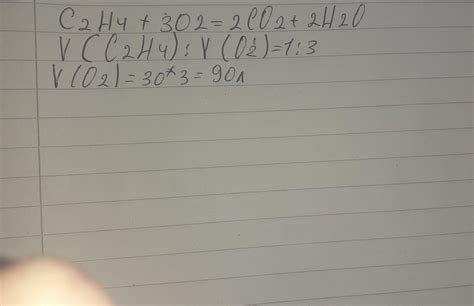 C2H4 + 3O2 = 2CO2 + 2H2O
V(C2H4) : V(O2) = 1:3
V(O2) = 30*3 = 90л